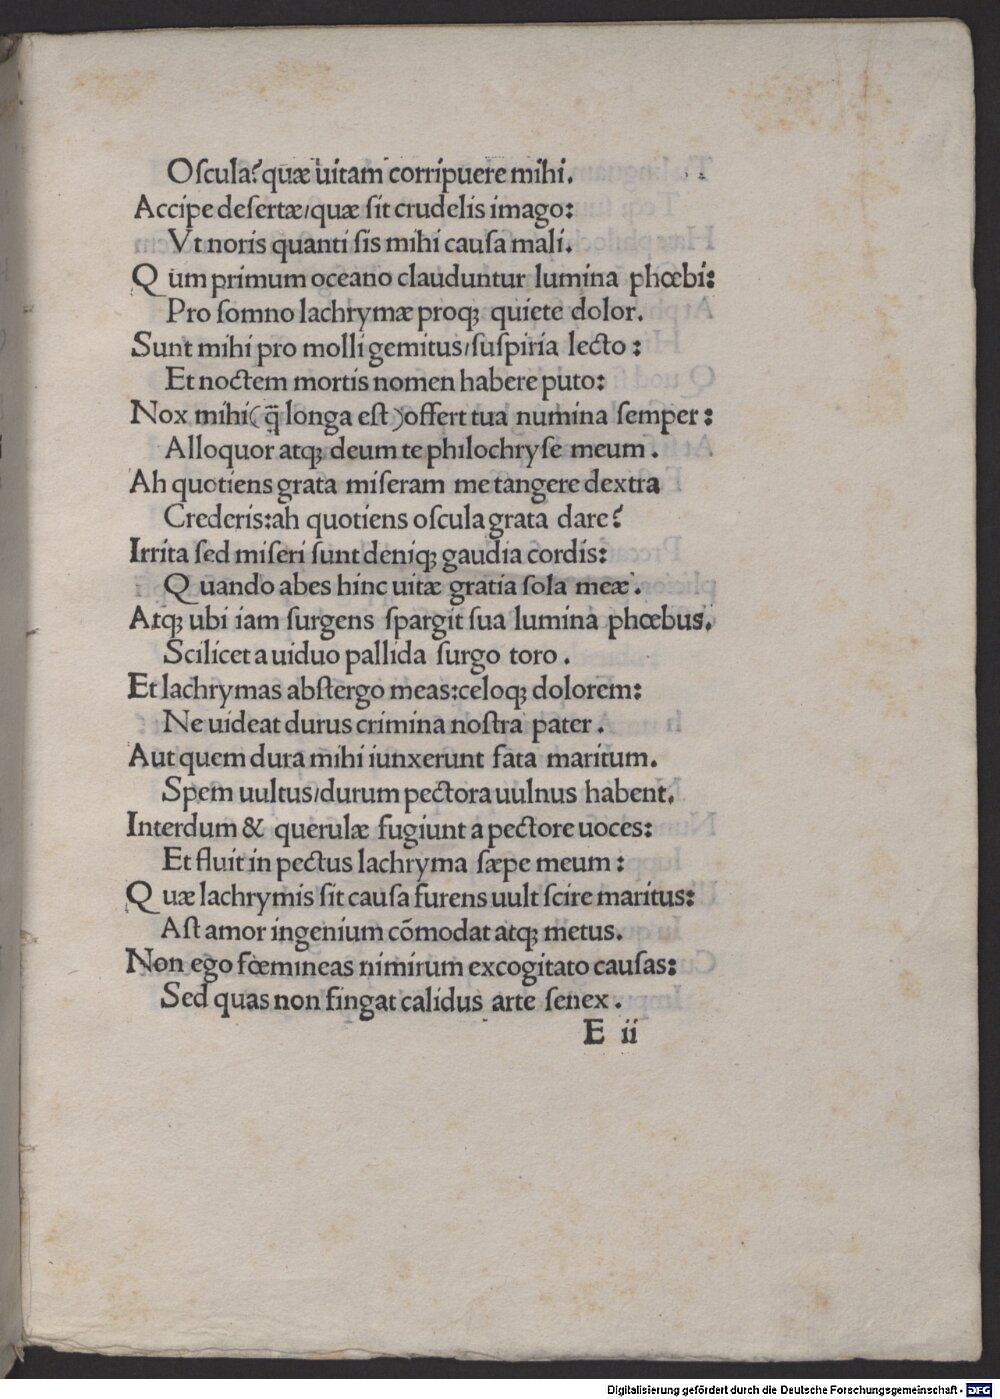 Oſcula? quæ uitam corripuere mihi.
Accipe deſertæ/quæ ſit crudelis imago:
Vt noris quanti ſis mihi cauſa mali.
Q um primum oceano clauduntur lumina phœbi:
Pro ſomno lachrymæ proqꝫ quiete dolor.
Sunt mihi pro molli gemitus/ſuſpiria lecto:
Et noctem mortis nomen habere puto:
Nox mihi (q̄ longa eſt) offert tua numina ſemper:
Alloquor atqꝫ deum te philochryſe meum.
Ah quotiens grata miſeram me tangere dextra
Crederis:ah quotiens oſcula grata dare?
Irrita ſed miſeri ſunt deniqꝫ gaudia cordis:
Q uando abes hinc uitæ gratia ſola meæ.
Atqꝫ ubi iam ſurgens ſpargit ſua lumina phœbus.
Scilicet a uiduo pallida ſurgo toro.
Et lachrymas abſtergo meas:celoqꝫ dolorem:
Ne uideat durus crimina noſtra pater.
Aut quem dura mihi iunxerunt fata maritum.
Spem uultus/durum pectora uulnus habent.
Interdum & querulæ fugiunt a pectore uoces:
Et fluit in pectus lachryma ſæpe meum:
Q uæ lachrymis ſit cauſa furens uult ſcire maritus:
Aſt amor ingenium cōmodat atqꝫ metus.
Non ego fœmineas nimirum excogitato cauſas:
Sed quas non fingat calidus arte ſenex.
E ii
Digitalisierung gefördert durch die Deutsche Forschungsgemeinschaft - DFG